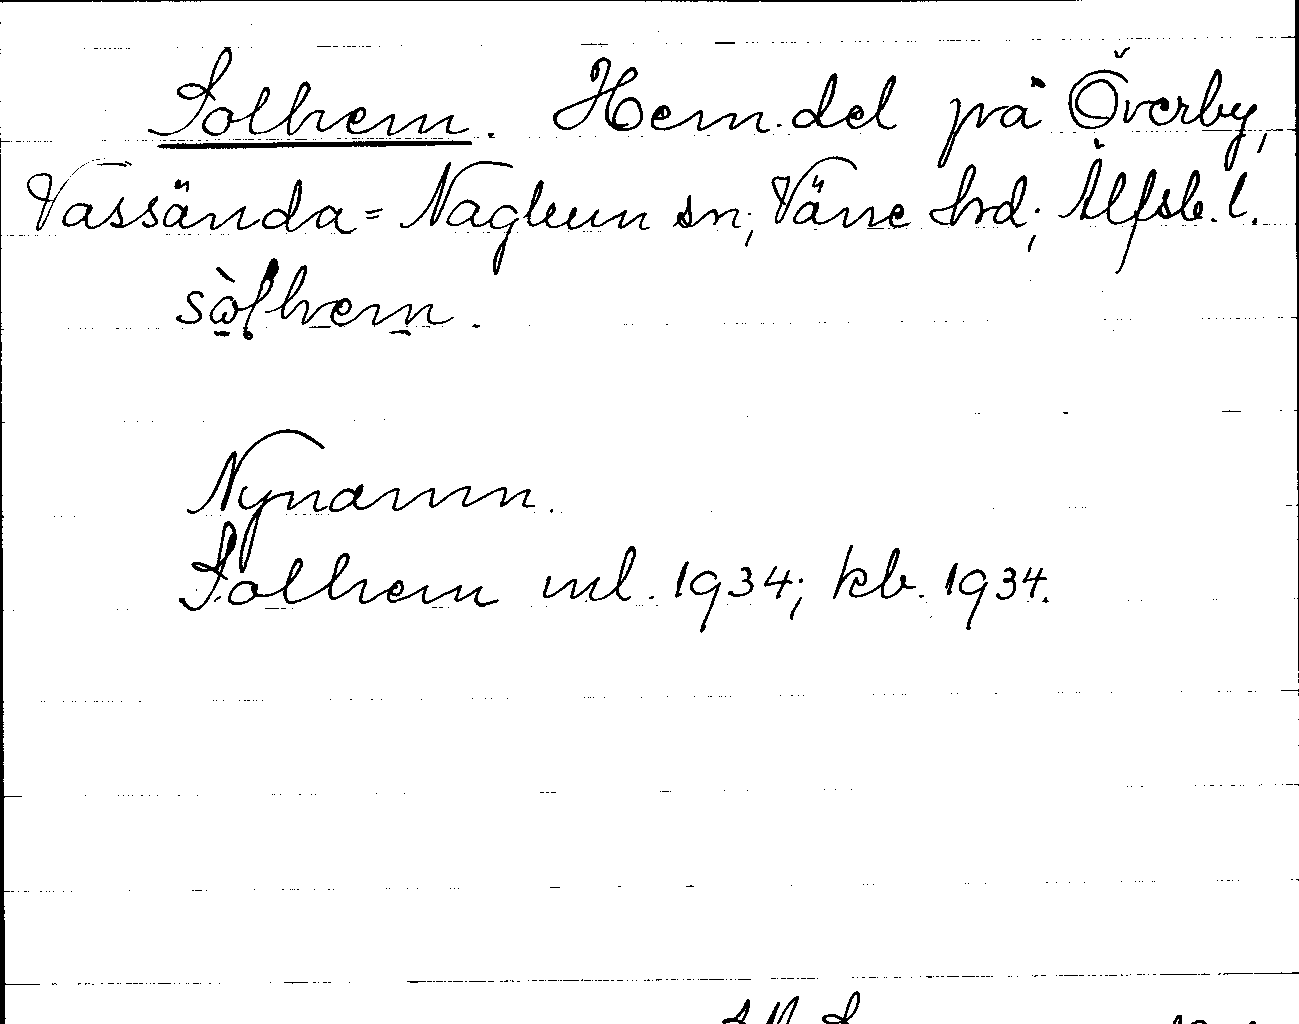 Solhem. Hem.del på Överby,
Vassända=Naglum sn; Väne hrd; Älfsb.l.
sòlhem.
Nynamn.
Solhem ml. 1934; kb. 1934.